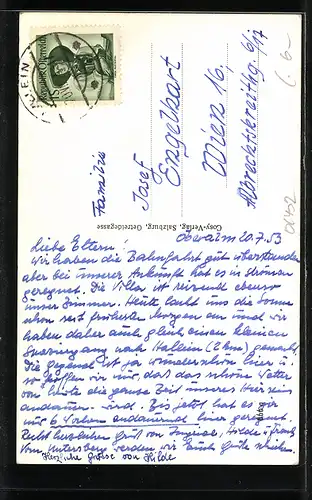 HALLEIN
REPUBLIK ÖSTERREICH
Familie
Josef
Engelhart
Wien 16.
Albrechtskreithg. 6/17
Cosy-Verlag, Salzburg, Getreidegasse
Oberalm 20.7.53
Liebe Eltern!
Wir haben die Bahnfahrt gut überstanden
aber bei unserer Ankunft hat es in Strömen
geregnet. Die Villa ist reizend ebenso
unser Zimmer. Heute lacht uns die Sonne
schon seit frühesten Morgen an und wir
haben daher auch gleich einen kleinen
Spaziergang nach Hallein (2 km) gemacht.
Die Gegend ist ja wunderschön hier u.
so hoffen wir nur, daß das schöne Wetter
von heute die ganze Zeit unseres Hierseins
andauern wird. Bis jetzt hat es hier
nur 6 Wochen andauernd hier geregnet.
Recht herzlichen Gruß von Hilde u. Franz
Vom Untersberg werden wir Euch Grüße schicken.
Herzliche Grüsse von Hilde